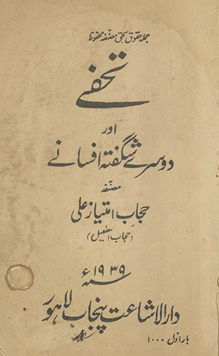 جملہ حقوق بحق مصنفہ محفوظ
تحفے
اور
دوسرے شگفتہ افسانے
مصنفہ
حجاب امتیاز علی
(حجاب اسمٰعیل)
۱۹۳۹ء
دار الاشاعت پنجاب لاہور
بار اول ۱۰۰۰